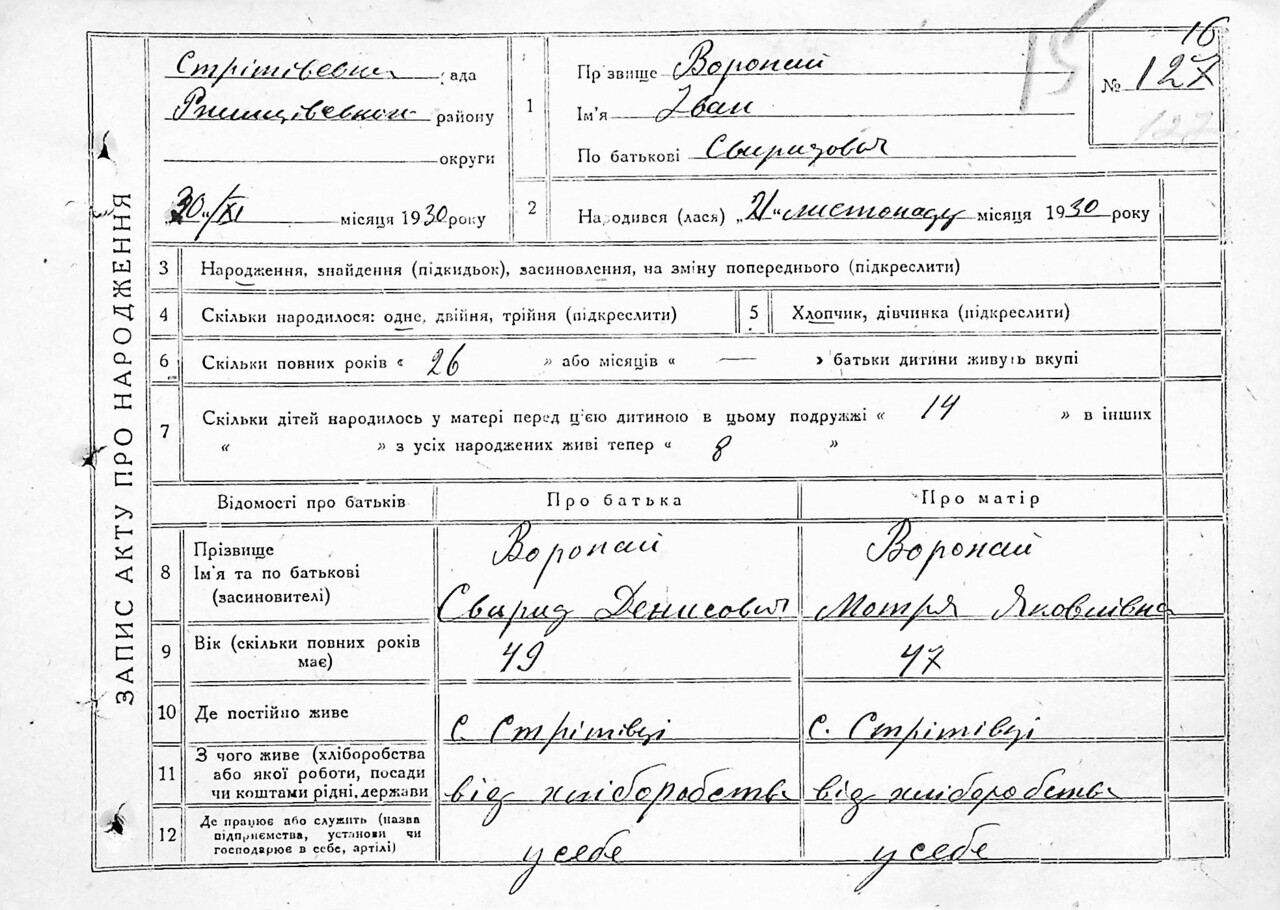 ЗАПИС АКТУ ПРО НАРОДЖЕННЯ
15
16
№ 127
127
Стрітівська рада
Ржищівський району
округи
30/XI місяця 1930 року
1
Прізвище Воропай
Ім'я Іван
По батькові Свиридович
2
Народився (лася) „21“ листопаду місяця 1930 року
3 Народження, знайдення (підкидьок), засиновлення, на зміну попереднього (підкреслити)
4 Скільки народилося: одне, двійня, трійня (підкреслити)
5 Хлопчик, дівчинка (підкреслити)
6 Скільки повних років « 26 » або місяців « — » батьки дитини живуть вкупі
7 Скільки дітей народилось у матері перед ц'єю дитиною в цьому подружжі « 14 » в інших
« » з усіх народжених живі тепер « 8 »
Відомості про батьків
Про батька
Про матір
8 Прізвище
Ім'я та по батькові
(засиновителі)
Воропай
Свирид Денисович
Воропай
Мотря Яковлівна
9 Вік (скільки повних років
має)
49
47
10 Де постійно живе
с. Стрітівці
с. Стрітівці
11 З чого живе (хліборобства
або якої роботи, посади
чи коштами рідні, держави
від хліборобства
від хліборобства
12 Де працює або служить (назва
підприємства, установи чи
господарює в себе, артілі)
у себе
у себе